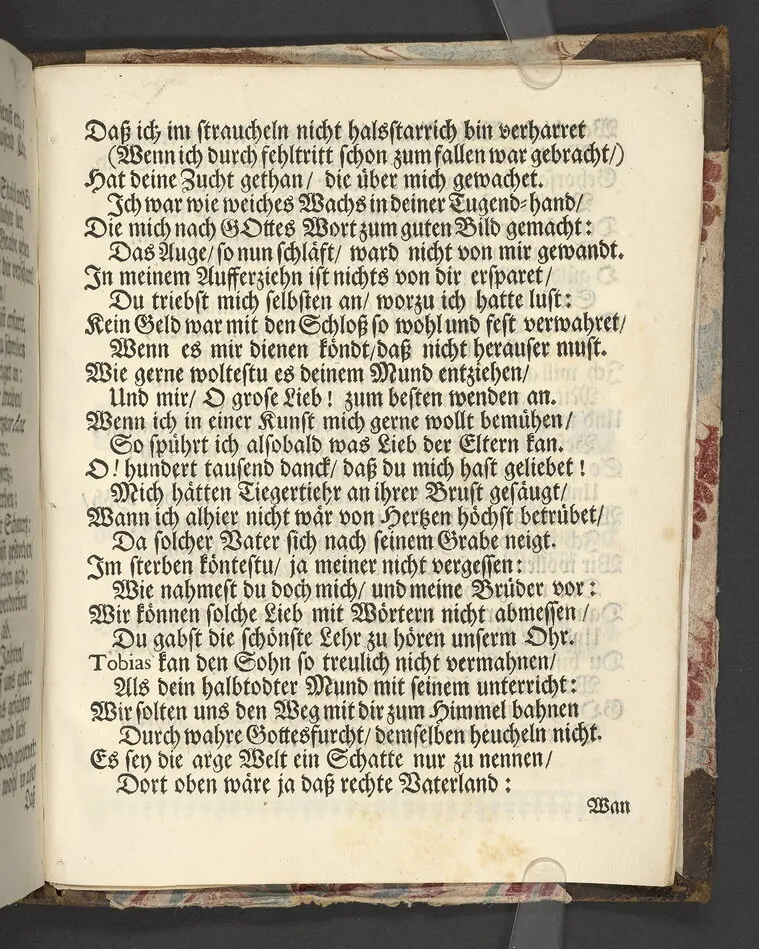 Daß ich im straucheln nicht halsstarrich bin verharret
(Wenn ich durch fehltritt schon zum fallen war gebracht/)
Hat deine Zucht gethan/ die über mich gewachet.
Ich war wie weiches Wachs in deiner Tugend-hand/
Die mich nach GOttes Wort zum guten Bild gemacht:
Das Auge/ so nun schläft/ ward nicht von mir gewandt.
In meinem Aufferziehn ist nichts von dir ersparet/
Du triebst mich selbsten an/ worzu ich hatte lust:
Kein Geld war mit den Schloß so wohl und fest verwahret/
Wenn es mir dienen köndt/ daß nicht herauser must.
Wie gerne woltestu es deinem Mund entziehen/
Und mir/ O grose Lieb! zum besten wenden an.
Wenn ich in einer Kunst mich gerne wollt bemühen/
So spührt ich alsobald was Lieb der Eltern kan.
O! hundert tausend danck/ daß du mich hast geliebet!
Mich hätten Tiegertiehr an ihrer Brust gesäugt/
Wann ich alhier nicht wär von Hertzen höchst betrübet/
Da solcher Vater sich nach seinem Grabe neigt.
Im sterben köntestu/ ja meiner nicht vergessen:
Wie nahmest du doch mich/ und meine Brüder vor:
Wir können solche Lieb mit Wörtern nicht abmessen/
Du gabst die schönste Lehr zu hören unserm Ohr.
Tobias kan den Sohn so treulich nicht vermahnen/
Als dein halbtodter Mund mit seinem unterricht:
Wir solten uns den Weg mit dir zum Himmel bahnen
Durch wahre Gottesfurcht/ demselben heucheln nicht.
Es sey die arge Welt ein Schatte nur zu nennen/
Dort oben wäre ja daß rechte Vaterland:
Wan